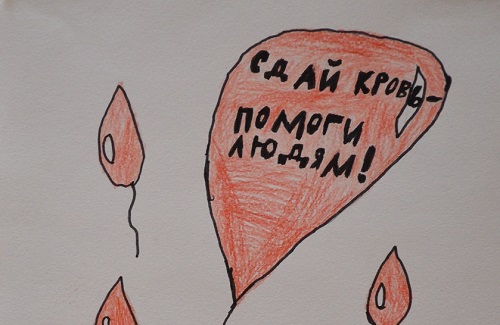 СДАЙ КРОВЬ-
ПОМОГИ
ЛЮДЯМ!